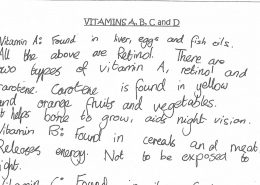 VITAMINS A, B, C and D
Vitamin A: Found in liver, eggs and fish oils.
All the above are Retinol. There are
two types of vitamin A, retinol and
carotene. Carotene is found in yellow
and orange fruits and vegetables.
It helps bone to grow, aids night vision.
Vitamin B: Found in cereals and meat
Releases energy. Not to be exposed to
light.
Vitamin C: Found in